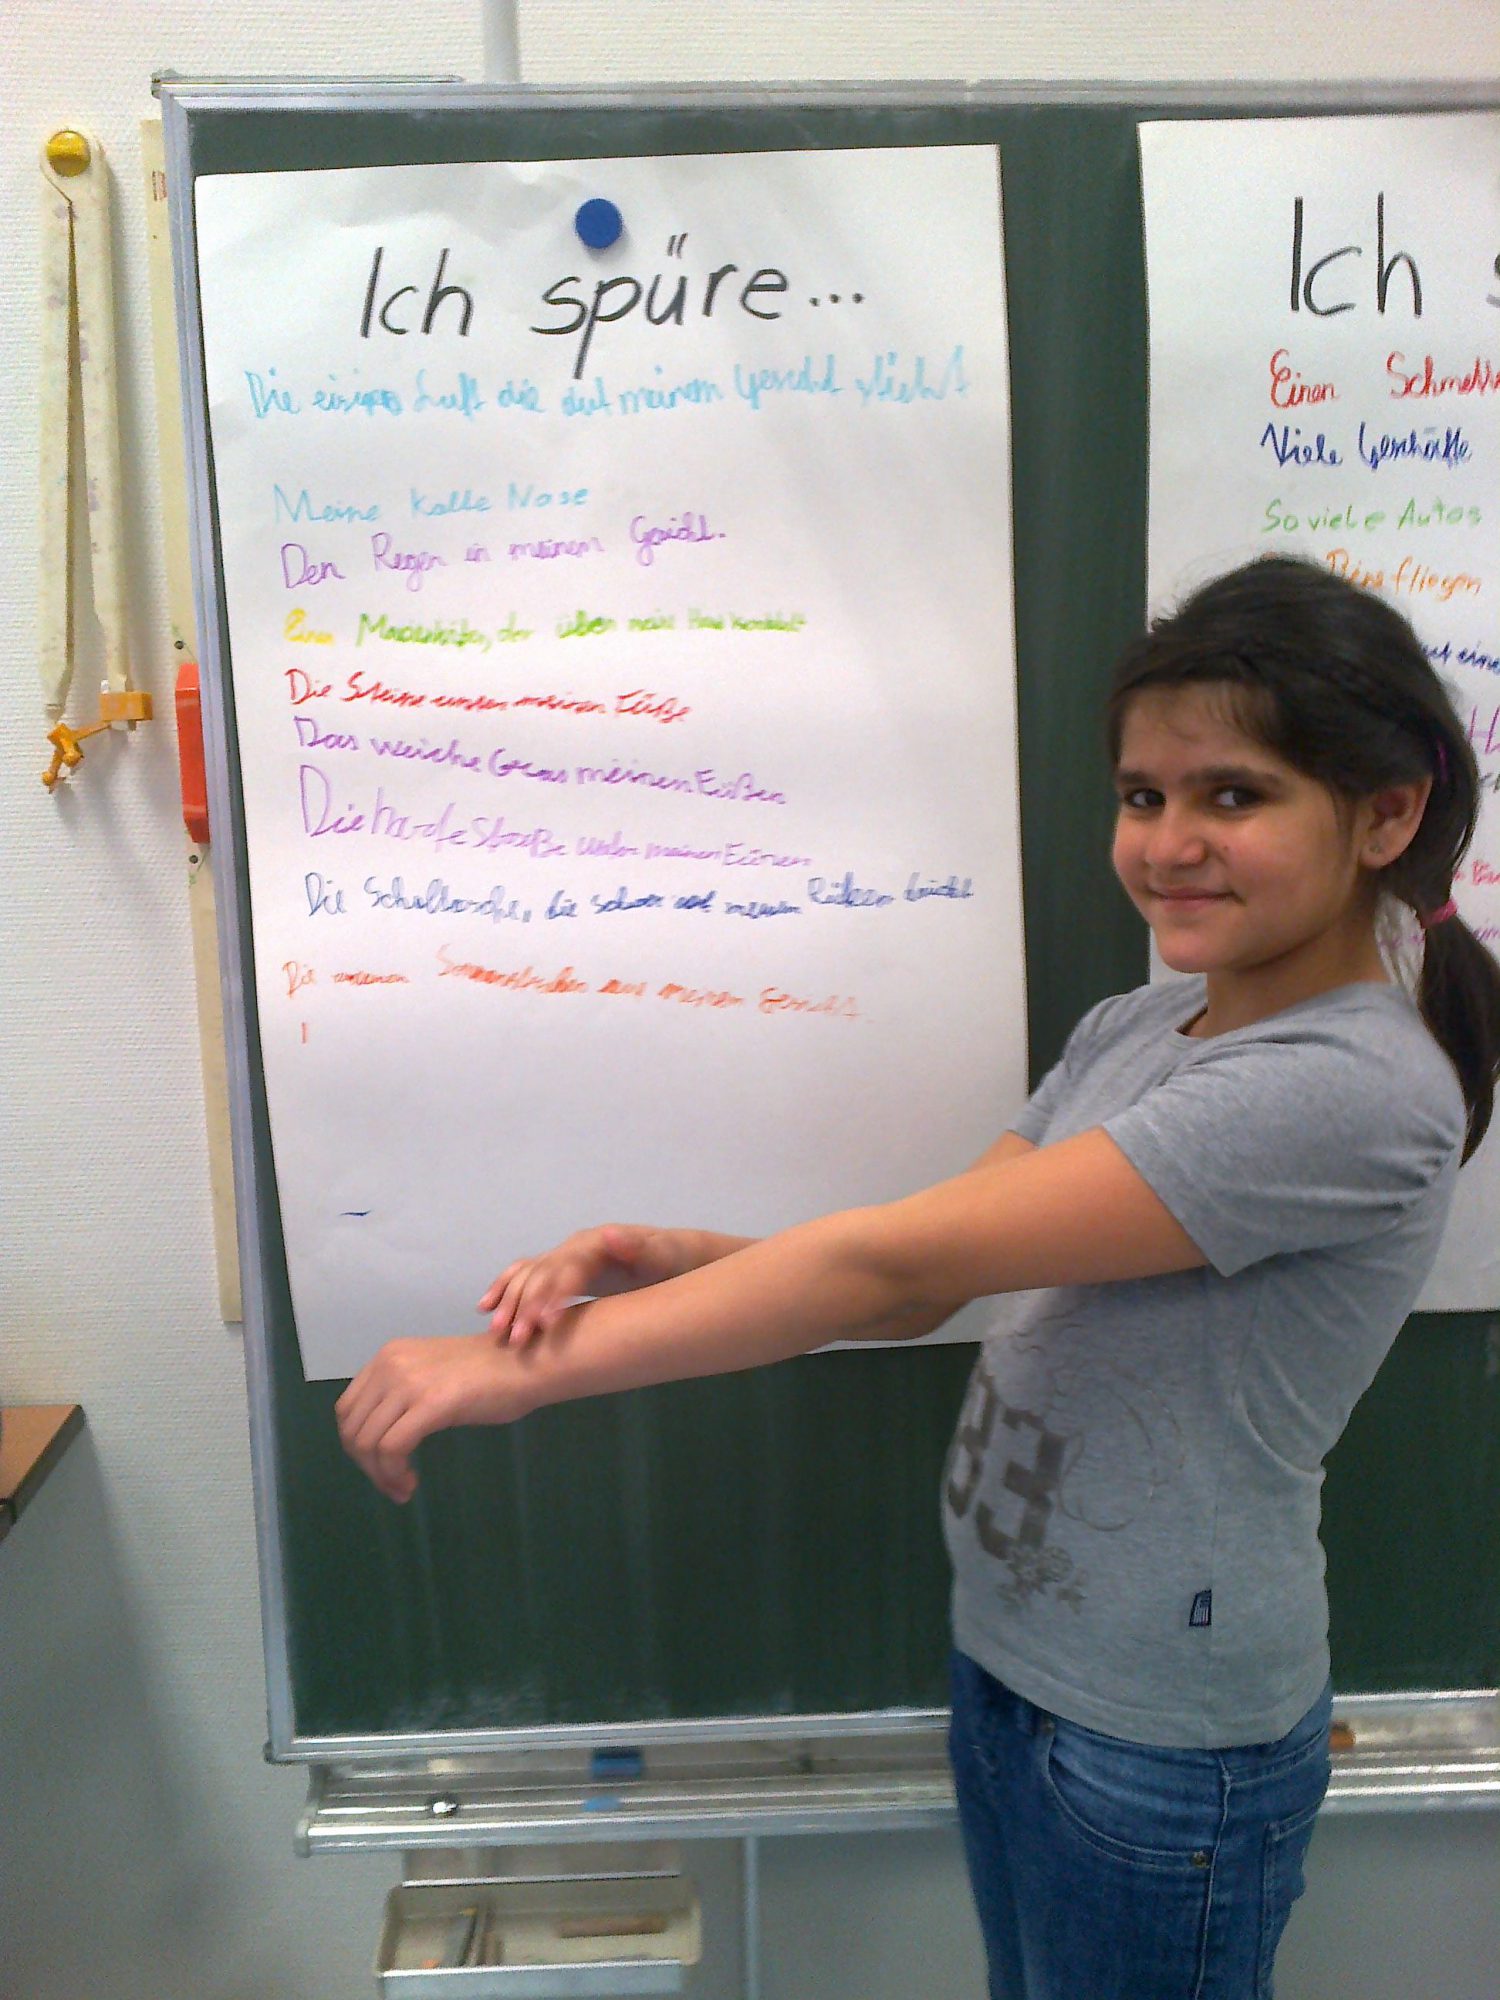 Ich spüre...
Die eisige Luft die auf meinem Gesicht sticht
Meine kalte Nase
Den Regen in meinem Gesicht.
Einen Marienkäfer, der über meine Hand krabbelt
Die Steine unter meinen Füße
Das weiche Gras meinen Füßen
Die harte Straße unter meinen Füßen
Die Schultasche, die schon auf meinen Rücken drückt
Die warmen Sonnenstrahlen auf meinem Gesicht.
Ich
Einen
Viele Geschäfte
So viele Autos
fliegen
33